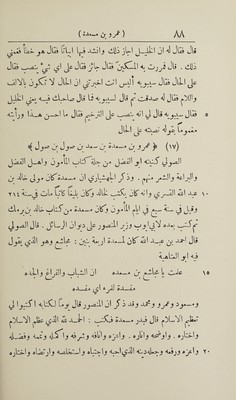 ٨٨ (عمرو بن مسعدة)
قال فقال له ان الخليل اجاز ذلك وانشد فيها ابياتا فقال هو خطأ فغمني
ذلك. قال فمررت به المسكين فقال جائز فقال على اي شيء ينصب فقال
على الحال فقال سيبويه أليس انت اخبرتني ان الحال لا تكون بالالف
واللام فقال له صدقت ثم قال لسيبويه فما قال صاحبك فيه يعني الخليل
٥ فقال سيبويه قال لي انه نصب على الترحيم فقال ما احسن هذا ورأيته
مغموما بقوله نصبته على الحال
(١٧) ﴿عمرو بن مسعدة بن سعد بن صول بن صول﴾
الصولي كنيته ابو الفضل من جلة كتاب المأمون واهل الفضل
والبراعة والشعر منهم. وذكر الجهشياري ان مسعدة كان مولى خالد بن
١٠ عبد الله القسري وانه كان يكتب لخالد وكان بليغا كاتبا مات في سنة ٢١٤
وقيل في سنة سبع في ايام المأمون وكان مسعدة من كتاب خالد بن برمك
ثم كتب بعده لابي ايوب وزير المنصور على ديوان الرسائل. قال الصولي
قال احمد بن عبد الله كان لمسعدة اربعة بنين: مجاشع وهو الذي يقول
فيه ابو العتاهية
١٥ علمت يا مجاشع بن مسعده ان الشباب والفراغ والجده
مفسدة للمرء اي مفسده
ومسعود وعمرو ومحمد وقد ذكر ان المنصور قال يوما لكتابه اكتبوا لي
تعظيم الاسلام قال فبدر مسعدة فكتب: الحمد لله الذي عظم الاسلام
واختاره. واوضحه وانارة. واعزه وانافه وشرفه واكمله وتممه وفضله
٢٠ واعزه ورفعه وجعله دينه الذي احبه واجتباه واستخلصه وارتضاه واختاره